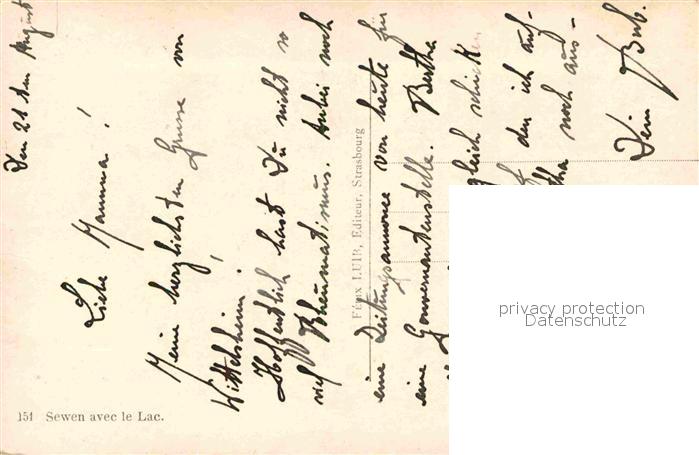 Den 21ten August
Liebe Mamma!
Meine herzlichsten Grüsse von
Wittelsheim!
Hoffentlich hast Du nicht so
viel Rheumatismus. Anbei noch
eine Zeitungsannonce von heute für
eine Gouvernantenstelle. Bertha
gleich schicken
den ich auf-
tha noch aus-
Dein Bub.
Félix LUIB, Editeur, Strasbourg
151 Sewen avec le Lac.
privacy protection
Datenschutz